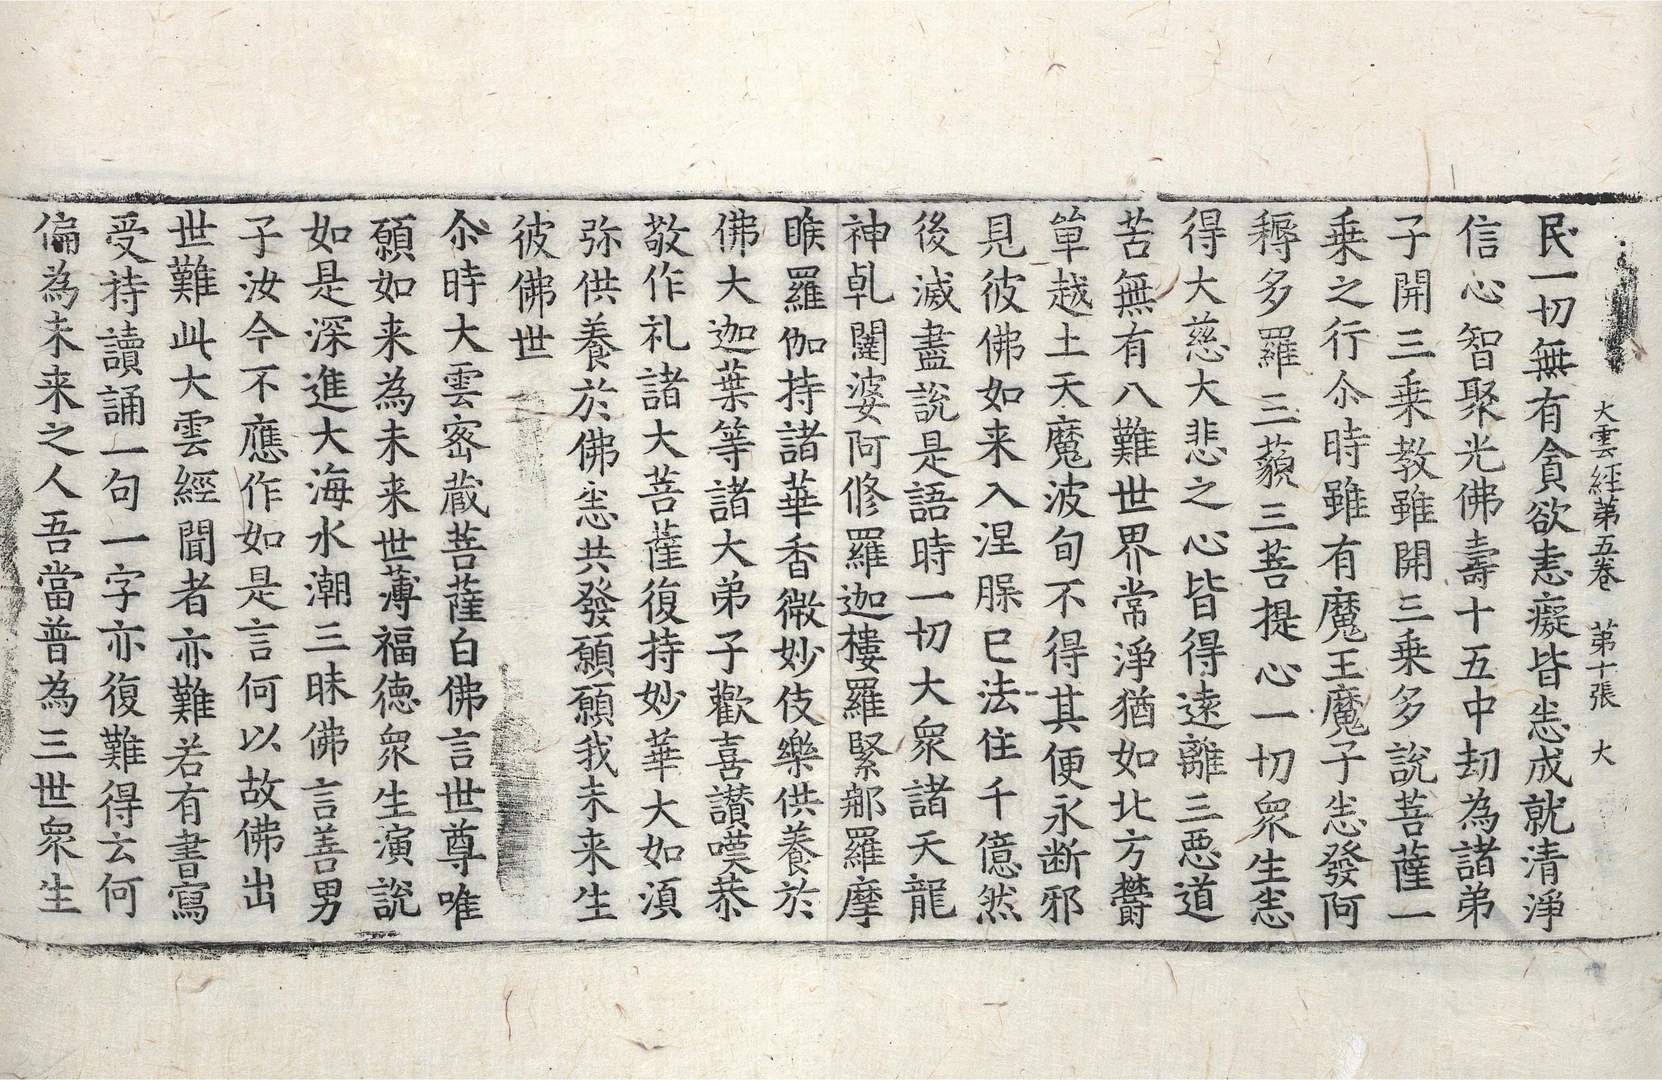 大雲經第五卷 第十張 大
民一切無有貪欲恚癡皆悉成就清淨
信心智聚光佛壽十五中劫為諸弟
子開三乗教雖開三乗多說菩薩一
乗之行尒時雖有魔王魔子悉發阿
耨多羅三藐三菩提心一切衆生悉
得大慈大悲之心皆得遠離三惡道
苦無有八難世界常淨猶如北方欝
單越土天魔波旬不得其便永断邪
見彼佛如来入涅槃已法住千億然
後滅盡說是語時一切大衆諸天龍
神乹闥婆阿修羅迦樓羅緊那羅摩
睺羅伽持諸華香微妙伎樂供養於
佛大迦葉等諸大弟子歡喜讃嘆恭
敬作礼諸大菩薩復持妙華大如湏
弥供養於佛悉共發願願我未来生
彼佛世
尒時大雲密蔵菩薩白佛言世尊唯
願如来為未来世薄福德衆生演說
如是深進大海水潮三昧佛言善男
子汝今不應作如是言何以故佛出
世難此大雲經聞者亦難若有書寫
受持讀誦一句一字亦復難得云何
偏為未来之人吾當普為三世衆生